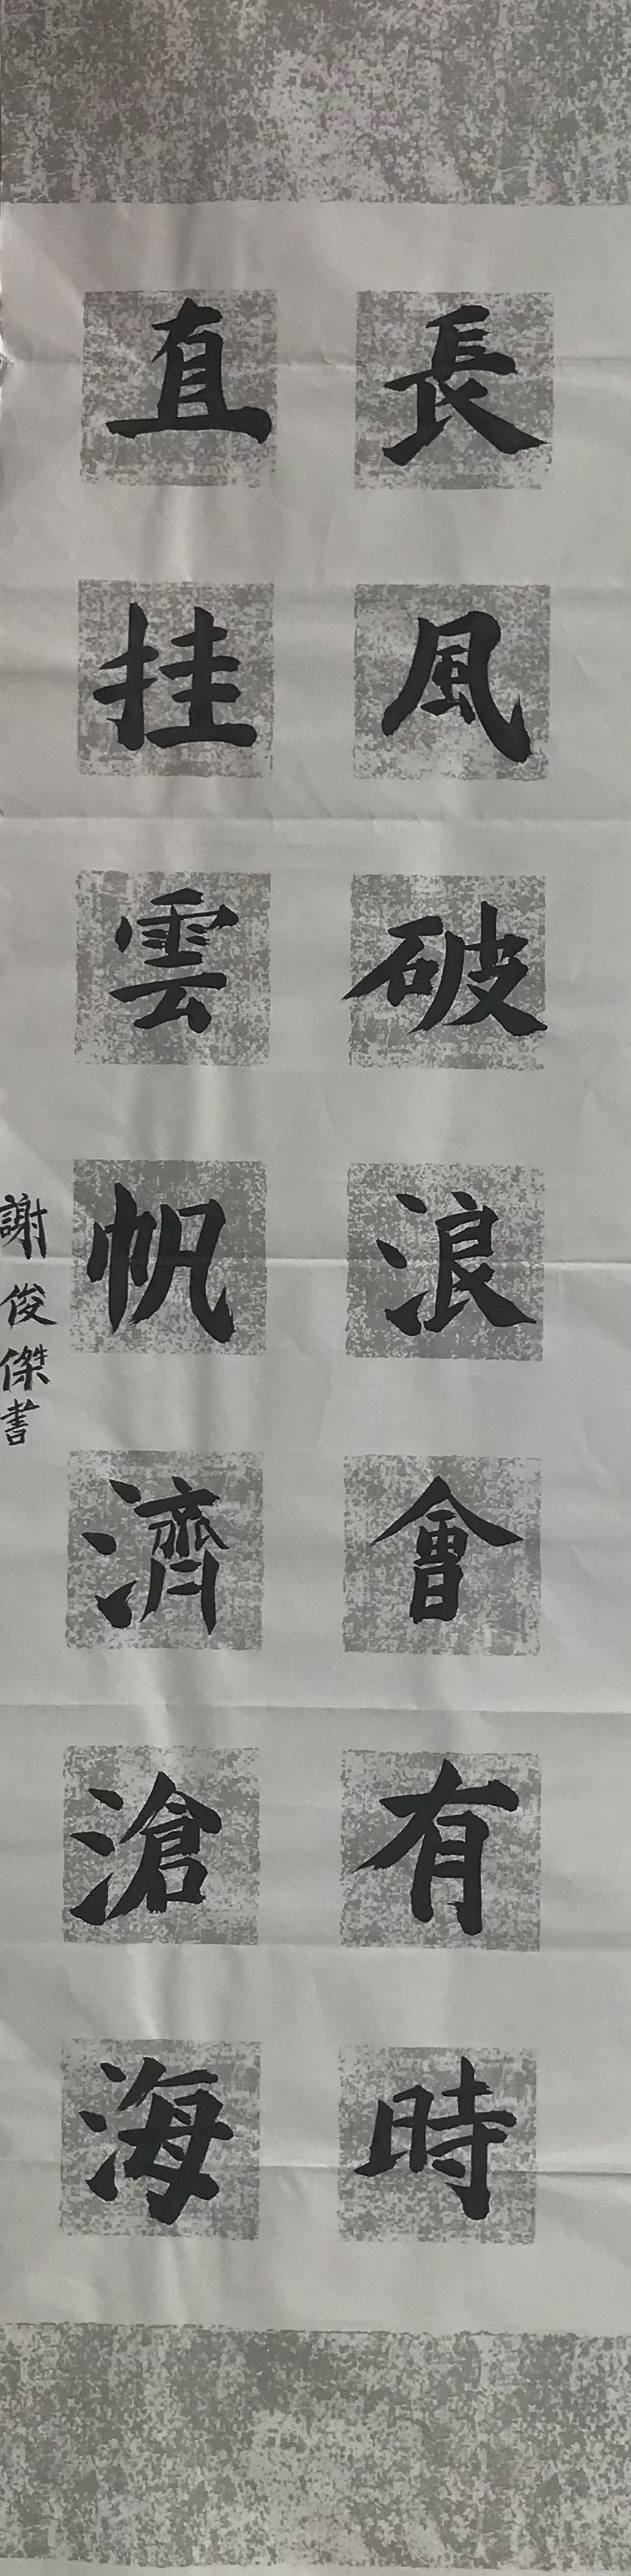 長風破浪會有時
直挂雲帆濟滄海
謝俊傑書